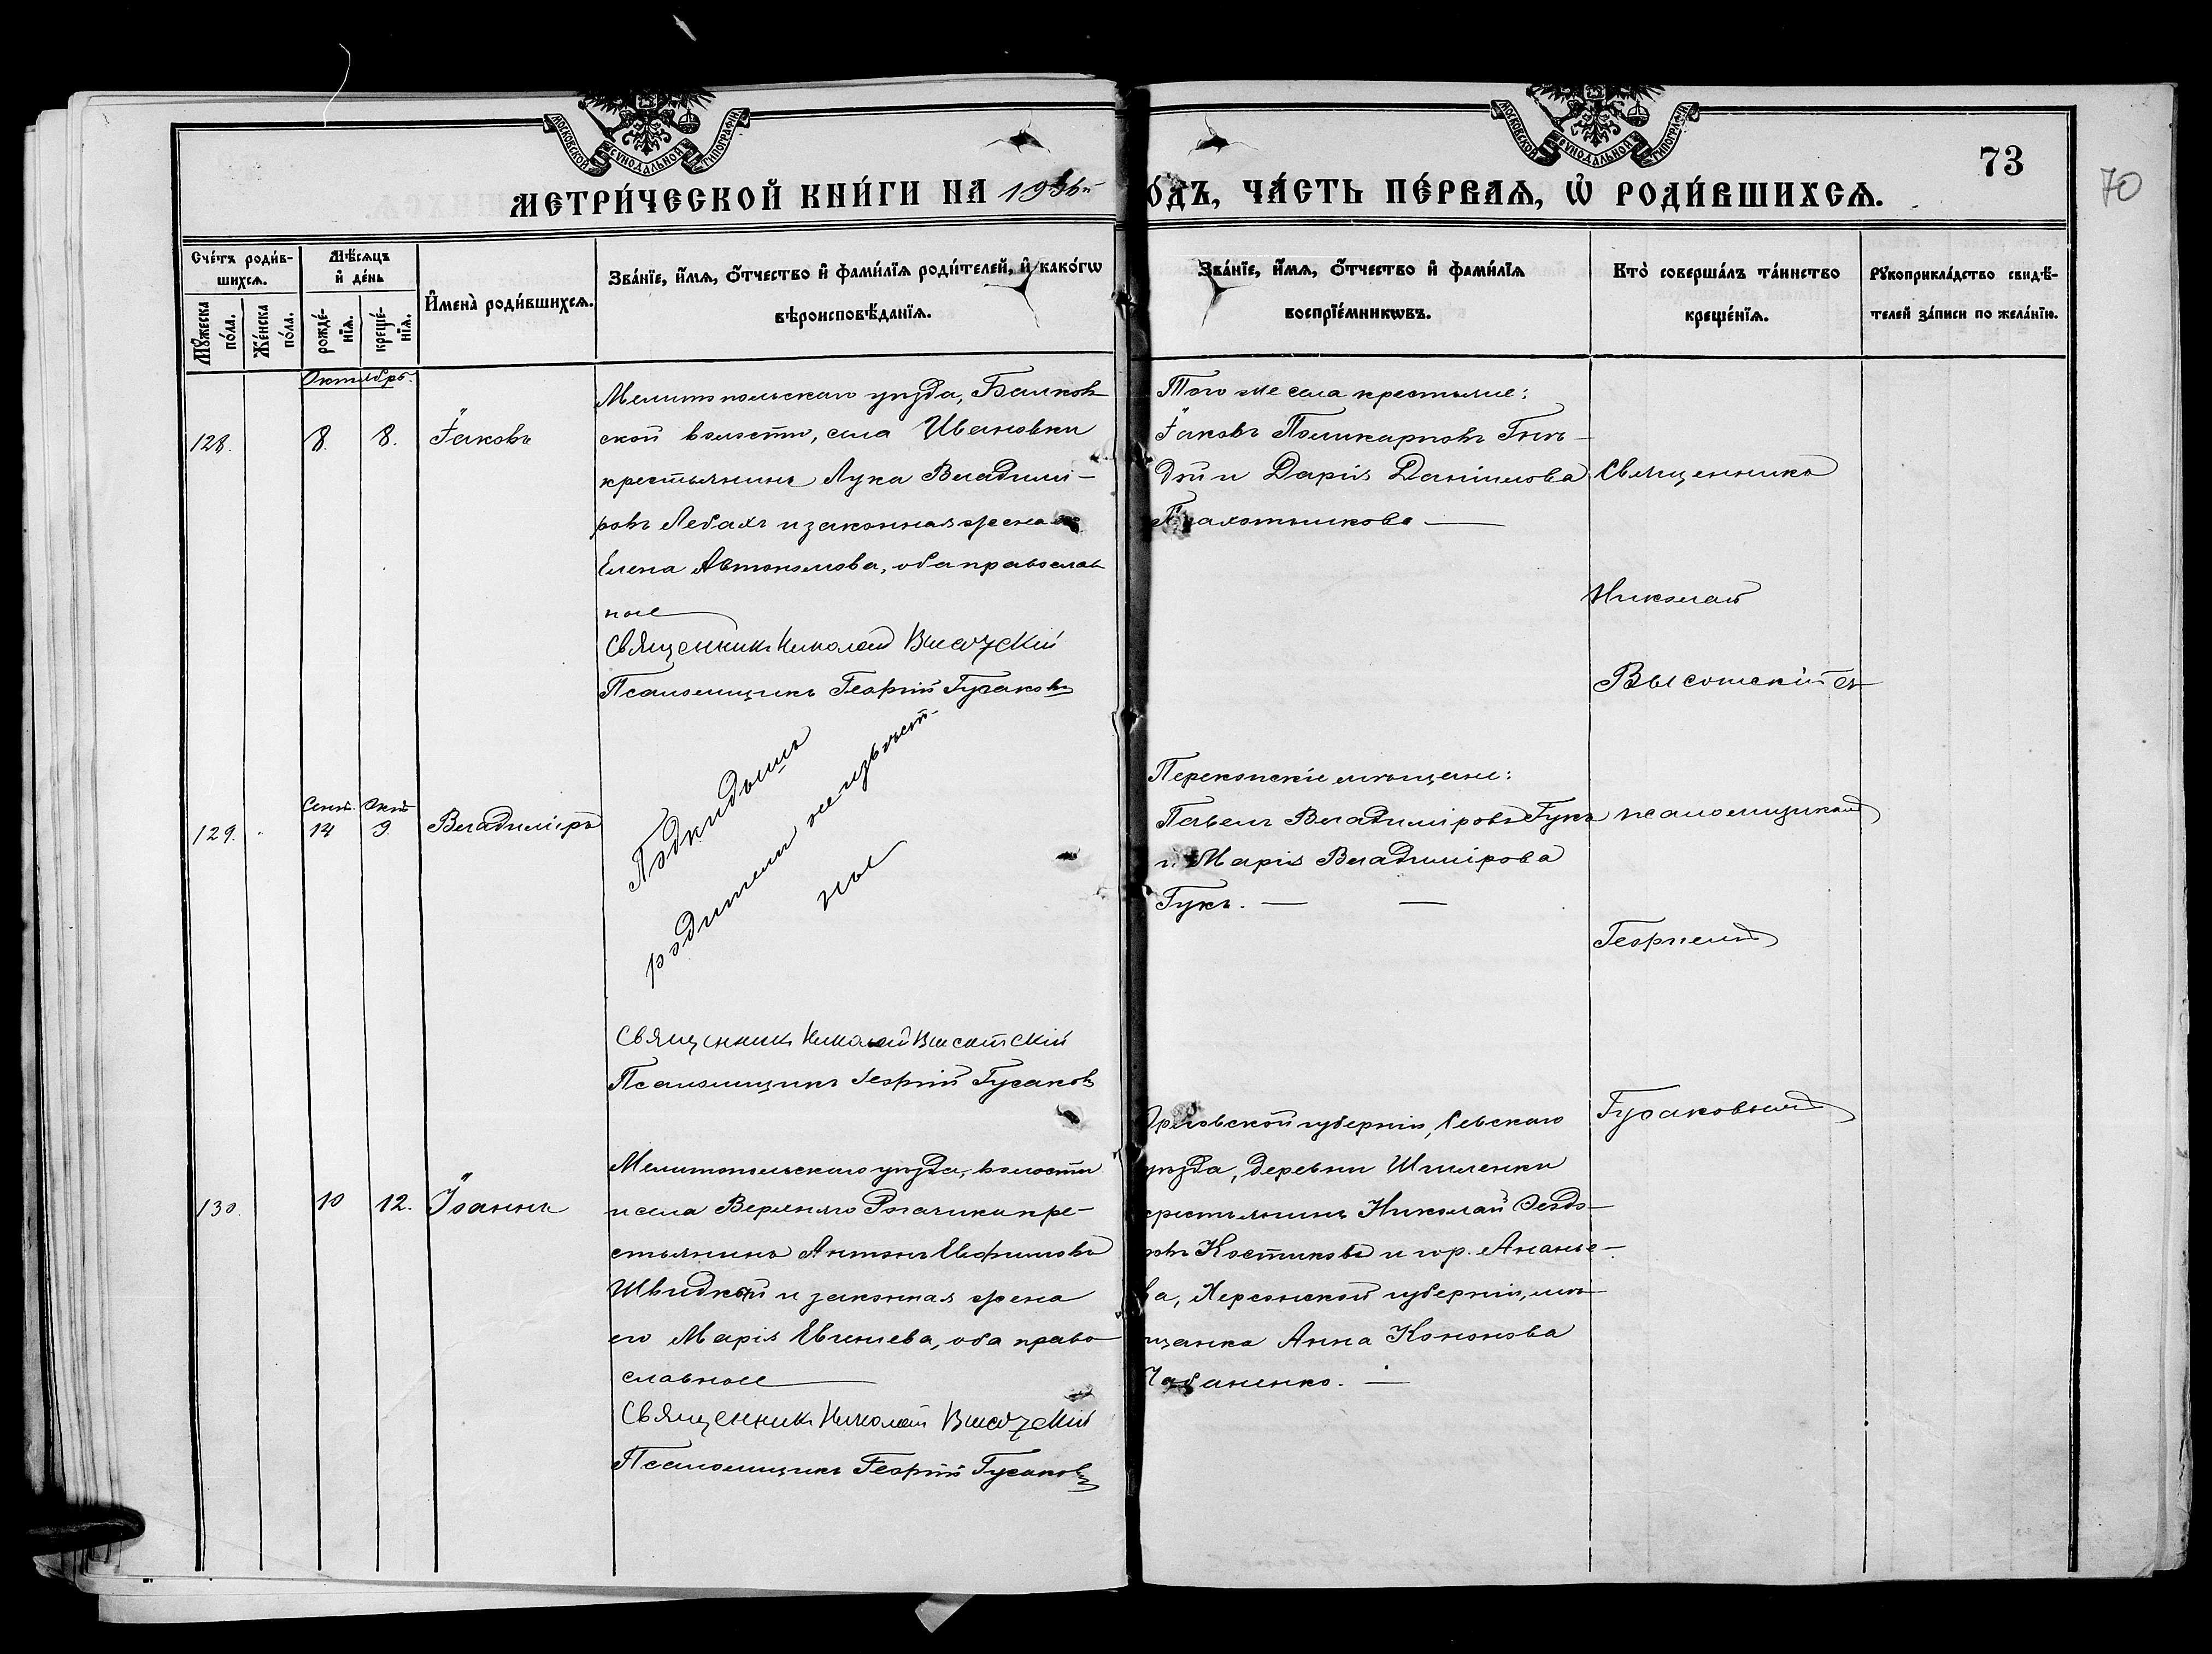 МОСКОВСКОЙ СѴНОДАЛЬНОЙ ТИПОГРАФІИ
МОСКОВСКОЙ СѴНОДАЛЬНОЙ ТИПОГРАФІИ
73
70
МЕТРИ́ЧЕСКОЙ КНИ́ГИ НА
ОДЪ, ЧА́СТЬ ПЕ́РВАѦ, Ѡ҆ РОДИ́ВШИХСѦ.
Сче́тъ роди́в-
шихсѧ.
Мꙋ́жеска по́ла.
Же́нска по́ла.
Мѣ́сѧцъ
и҆ де́нь
рожде́-
нїѧ.
креще́-
нїѧ.
И҆мена̀ роди́вшихсѧ.
Зва́нїе, и҆́мѧ, ѻ҆́тчество и҆ фами́лїѧ роди́телей, и҆ како́гѡ
вѣроисповѣ́данїѧ.
Зва́нїе, и҆́мѧ, ѻ҆́тчество и҆ фами́лїѧ
воспрїе́мникѡвъ.
Кто̀ соверша́лъ та́инство
креще́нїѧ.
Рꙋкоприкла́дство свидѣ́-
телей за́писи по жела́нїю.
Октябрь.
128.
8.
8.
Іаковъ
Мелитопольскаго уѣзда, Балков-
ской волости, села Ивановки
крестьянинъ Лука Владимі-
ровъ Лебахъ и законная жена
Елена Автономова, оба православ
ные
Священникъ Николай Высотскій
Псаломщикъ Георгій Гусаковъ
Того же села крестьяне:
Іаковъ Поликарповъ
и Дарія Даніилова
Священникъ
Николай
Высотскій съ
129.
Сент.
14
Окт.
9
Владиміръ
Подкидышъ
родители неизвѣст-
ны
Священникъ Николай Высотскій
Псаломщикъ Георгій Гусаковъ
Перекопскіе мѣщане:
Павелъ Владиміровъ Гукъ
и Марія Владимірова
Гукъ.
псаломщикомъ
Георгіемъ
Гусаковымъ
130.
10
12.
Іоаннъ
Мелитопольскаго уѣзда, волости
и села Верхняго Рогачика кре-
стьянинъ Антонъ Евфимовъ
Швидкій и законная жена
его Марія Евгеніева, оба право
славные
Священникъ Николай Высотскій
Псаломщикъ Георгій Гусаковъ
Орловской губерніи, Севскаго
уѣзда, деревни Шиленки
крестьянинъ Николай Ѳеодо-
ровъ Костиковъ и гор. Ананье-
ва, Херсонской губерніи, мѣ-
щанка Анна Кононова
Чабаненко.